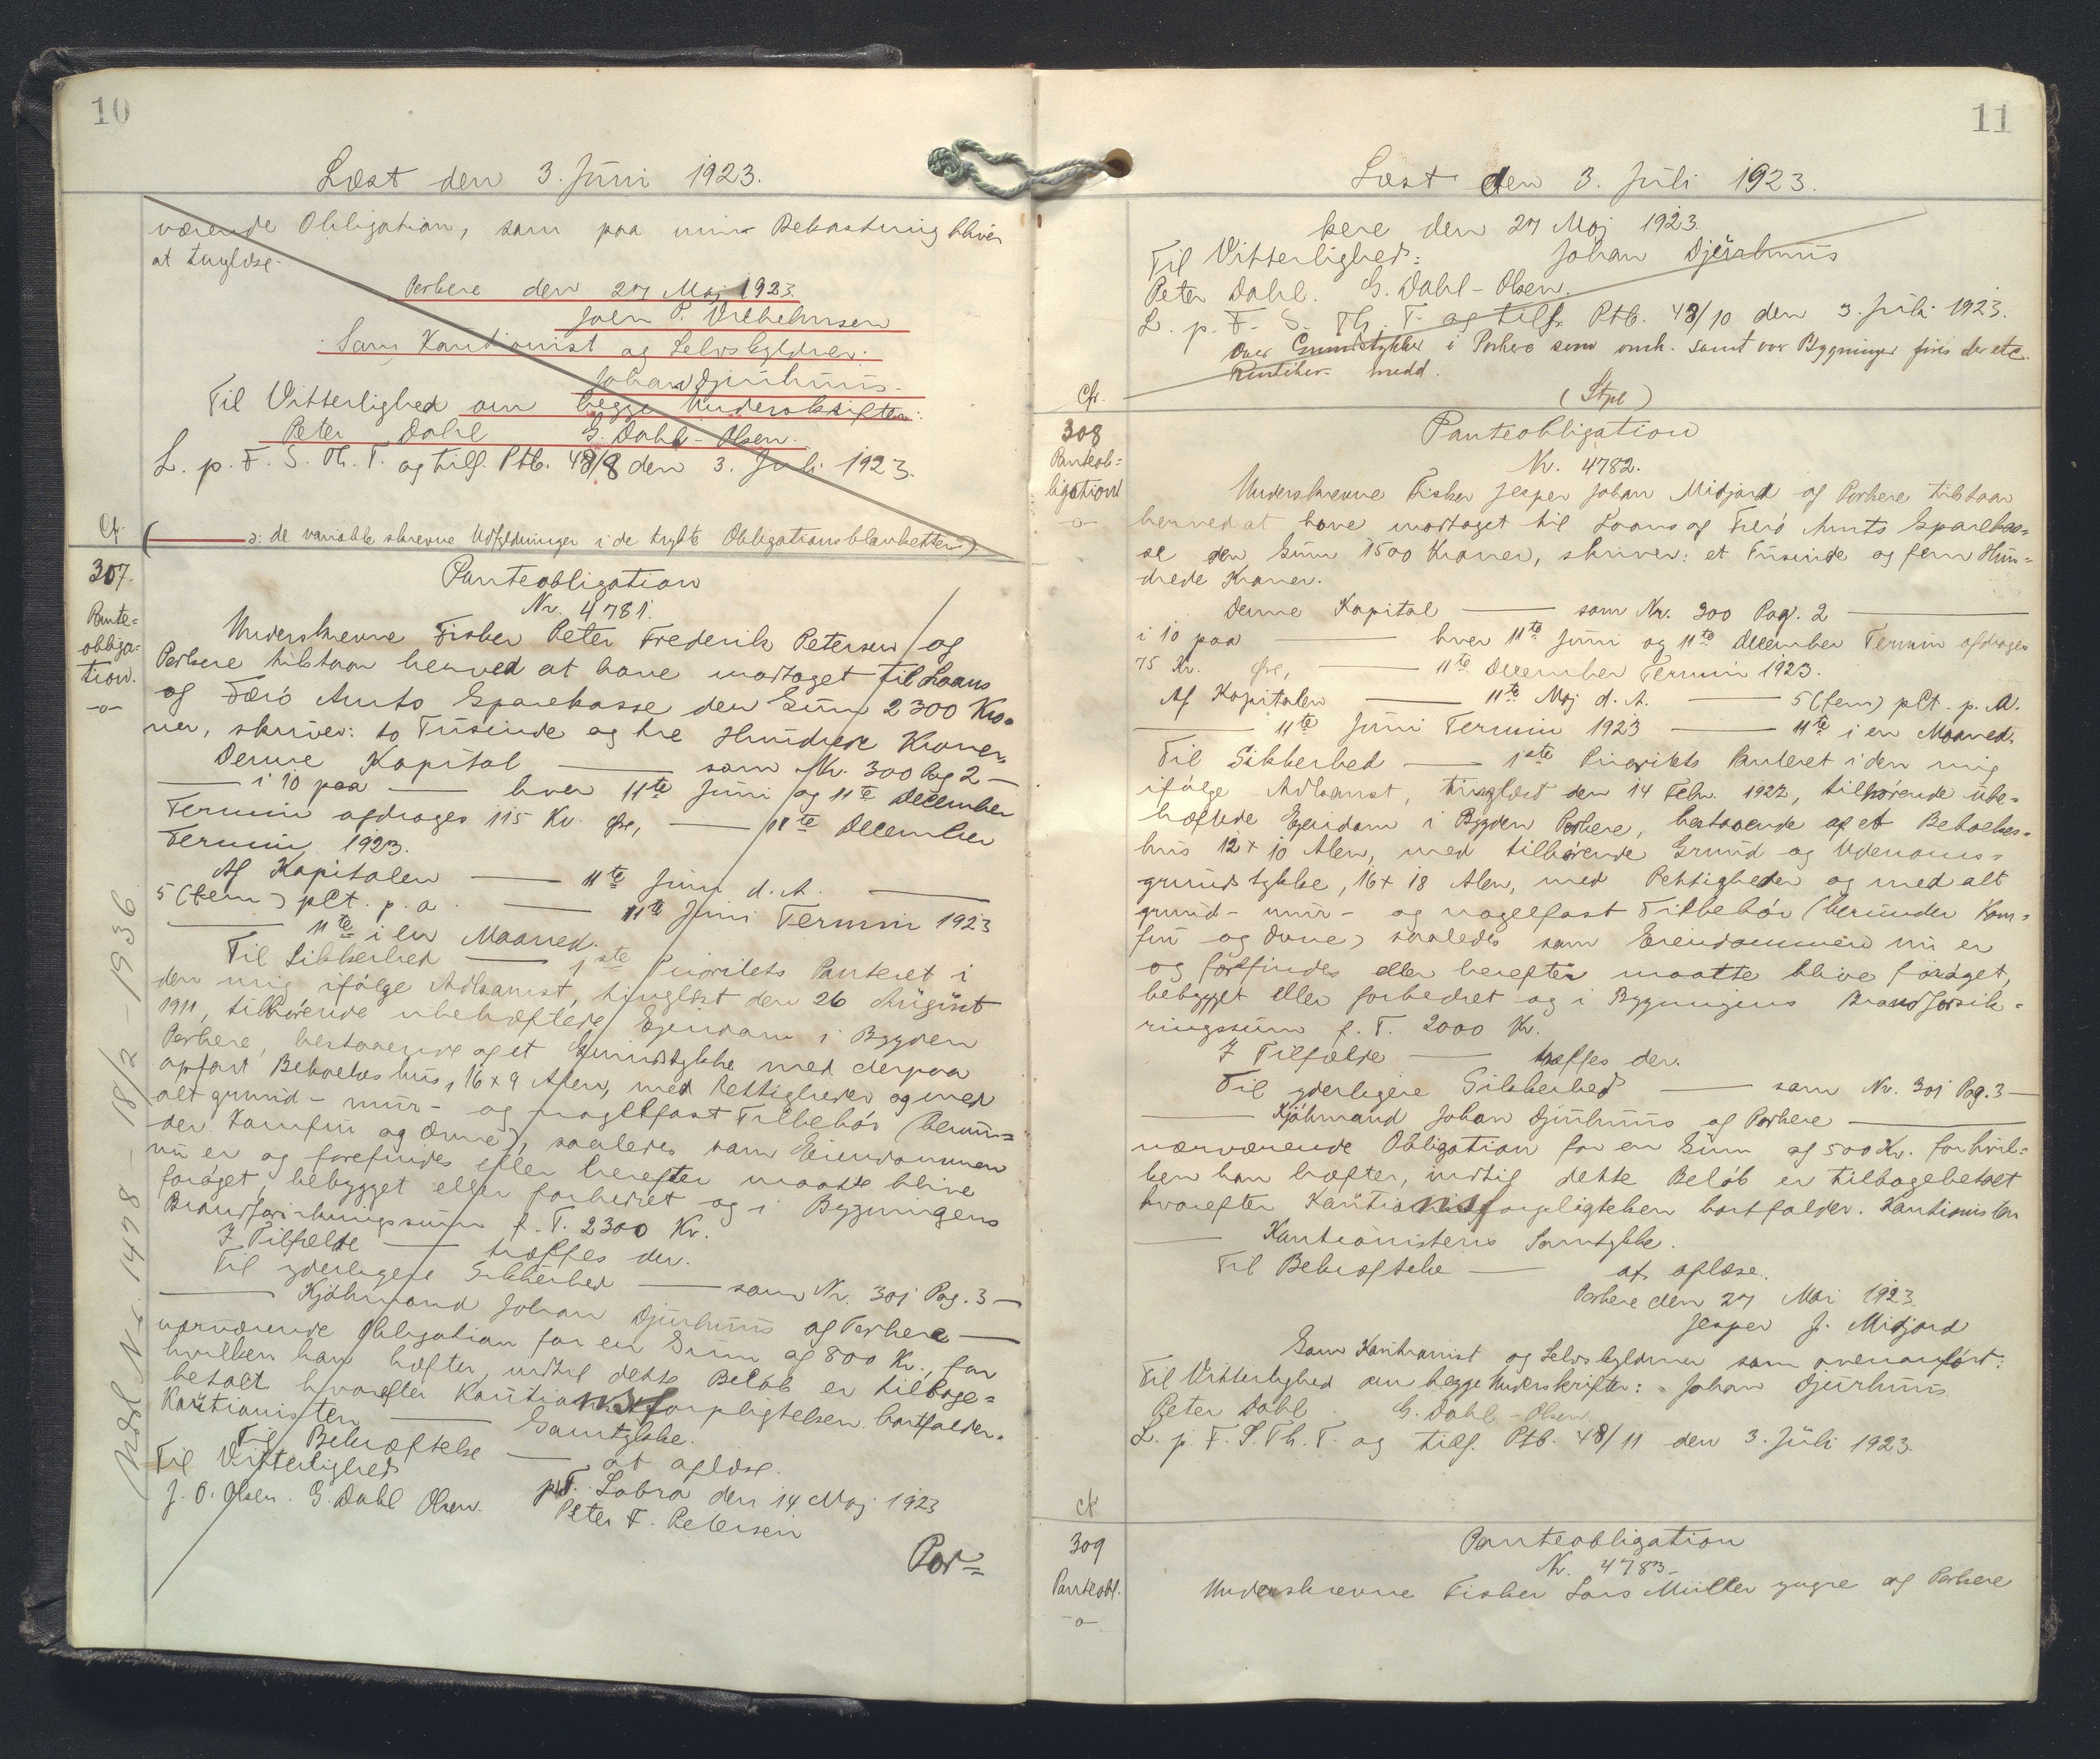 10
Læst den 3. Juni 1923.
værende Obligation, som paa min Bekostning bliver
at tinglæse.
Porkere den 27 Maj 1923.
Joen P. Vilhelmsen
Som Kautionist og Selvskyldner:
Johan Djurhuus.
Til Vitterlighed om begge Underskrifter:
Peter Dahl G. Dahl-Olsen.
L. p. F. S. Th. T. og tilf. Ptb. 48/8 den 3. Juli 1923.
Cfr.
( ɔ: de variable skrevne Udfyldninger i de trykte Obligationsblanketter)
307.
Pante=
obliga=
tion.
-o-
Panteobligation
Nr. 4781.
Underskrevne Fisker Peter Frederik Petersen og
Porkere tilstaar herved at have modtaget til Laans
af Færø Amts Sparekasse den Sum 2300 Kro=
ner, skriver: to Tusinde og tre Hundrede Kroner.
Denne Kapital — som Nr. 300 Pag 2 —
— i 10 paa — hver 11te Juni og 11te December
Termin afdrages 115 Kr. Øre, — 11te December
Termin 1923.
Af Kapitalen — 11te Juni d. A. —
5 (fem) pCt. p. a. — 11te Juni Termin 1923
— 11te i en Maaned.
Til Sikkerhed — 1ste Prioritets Panteret i
den mig ifølge Adkomst, tinglæst den 26 August
1911, tilhørende ubehæftede Ejendom i Bygden
Porkere, bestaaende af et Grundstykke med derpaa
opført Beboelseshus, 16 x 9 Alen, med Rettigheder og med
alt grund- mur- og nagelfast Tilbehør (herun=
der Komfur og Ovne), saaledes som Ejendommen
nu er og forefindes eller herefter maatte blive
forøget, bebygget eller forbedret og i Bygningens
Brandforsikringssum f. T. 2300 Kr.
I Tilfælde — træffes der.
Til yderligere Sikkerhed — som Nr. 301 Pag. 3 —
— Kjøbmand Johan Djurhuus af Porkere —
nærværende Obligation for en Sum af 800 Kr., for
hvilken han hæfter, indtil dette Beløb er tilbage=
betalt hvorefter Kautionsforpligtelsen bortfalder.
Kautionisten — Samtykke.
Til Bekræftelse — at aflæse.
Til Vitterlighed p.t. Lobra den 14 Maj 1923
J. O. Olsen. G. Dahl Olsen. Peter F. Petersen
Por=
Udsl. Nr. 1498 - 18/2 - 1936
11
Læst den 3. Juli 1923.
kere den 27 Maj 1923.
Til Vitterlighed: Johan Djurhuus
Peter Dahl. G. Dahl-Olsen.
L. p. F. S. Th. T. og tilf. Ptb. 48/10 den 3. Juli 1923.
Over Grundstykket i Porkere som omh. samt over Bygninger fins der etc.
medd.
Cfr.
(Stpl)
308
Panteob=
ligation
-o-
Panteobligation
Nr. 4782.
Underskrevne Fisker Jesper Johan Midjord af Porkere tilstaar
herved at have modtaget til Laans af Færø Amts Sparekas=
se den Sum 1500 Kroner, skriver: et Tusinde og fem Hun=
drede Kroner.
Denne Kapital — som Nr. 300 Pag. 2 —
i 10 paa — hver 11te Juni og 11te December Termin afdrages
75 Kr. Øre, — 11te December Termin 1923.
Af Kapitalen — 11te Maj d. A. — 5 (fem) pCt. p. A.
— 11te Juni Termin 1923 — 11te i en Maaned.
Til Sikkerhed — 1ste Prioritets Panteret i den mig
ifølge Adkomst, tinglæst den 14 Febr. 1922, tilhørende ube=
hæftede Ejendom i Bygden Porkere, bestaaende af et Beboelses=
hus 12 x 10 Alen, med tilhørende Grund og Udenoms=
grundstykke, 16 x 18 Alen, med Rettigheder og med alt
grund- mur- og nagelfast Tilbehør (herunder Kom=
fur og Ovne) saaledes som Ejendommen nu er
og forefindes eller herefter maatte blive forøget,
bebygget eller forbedret og i Bygningens Brandforsik=
ringssum f. T. 2000 Kr.
I Tilfælde — træffes der.
Til yderligere Sikkerhed — som Nr. 301 Pag. 3 —
— Kjøbmand Johan Djurhuus af Porkere —
nærværende Obligation for en Sum af 500 Kr. for hvil=
ken han hæfter, indtil dette Beløb er tilbagebetalt
hvorefter Kautionsforpligtelsen bortfalder. Kautionisten
— Kautionistens Samtykke.
Til Bekræftelse — at aflæse.
Porkere den 27 Mai 1923
Jesper J. Midjord
Som Kautionist og Selvskyldner som ovenanført:
Til Vitterlighed om begge Underskrifter: Johan Djurhuus
Peter Dahl. G. Dahl-Olsen.
L. p. F. S. Th. T. og tilf. Ptb. 48/11 den 3. Juli 1923.
Cfr
309
Panteobl.
-o-
Panteobligation
Nr. 4783.
Underskrevne Fisker Lars Müller yngre af Porkere